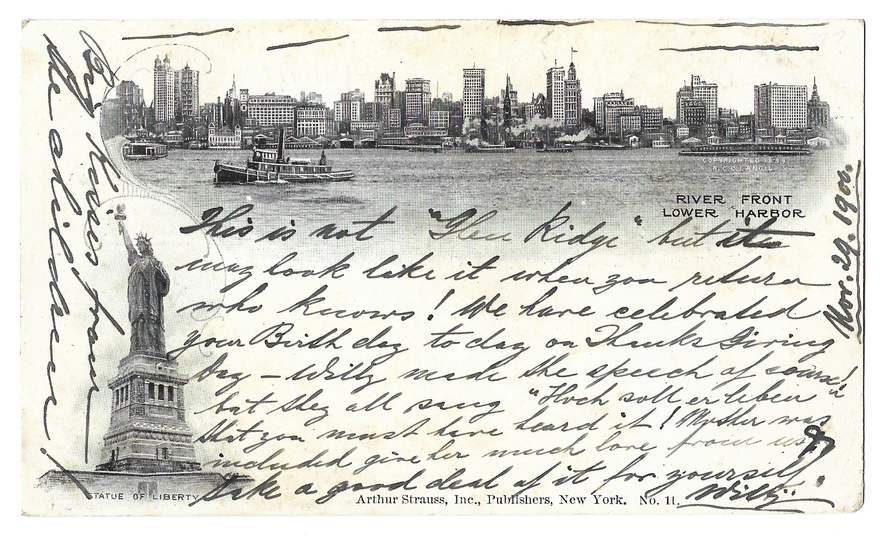 COPYRIGHTED 1899
RIVER FRONT
LOWER HARBOR
This is not "Glen Ridge" but it
may look like it when you return
who knows! We have celebrated
your Birthday to day on Thanks Giving
Day – Willy made the speech of course!
but they all sang "Hoch soll er leben"
that you must have heard it! Mother was
included give her much love from us
take a good deal of it for yourself
Willy.
Nov. 29. 1900.
Big Kisses from
the children!
STATUE OF LIBERTY
Arthur Strauss, Inc., Publishers, New York. No. 11.